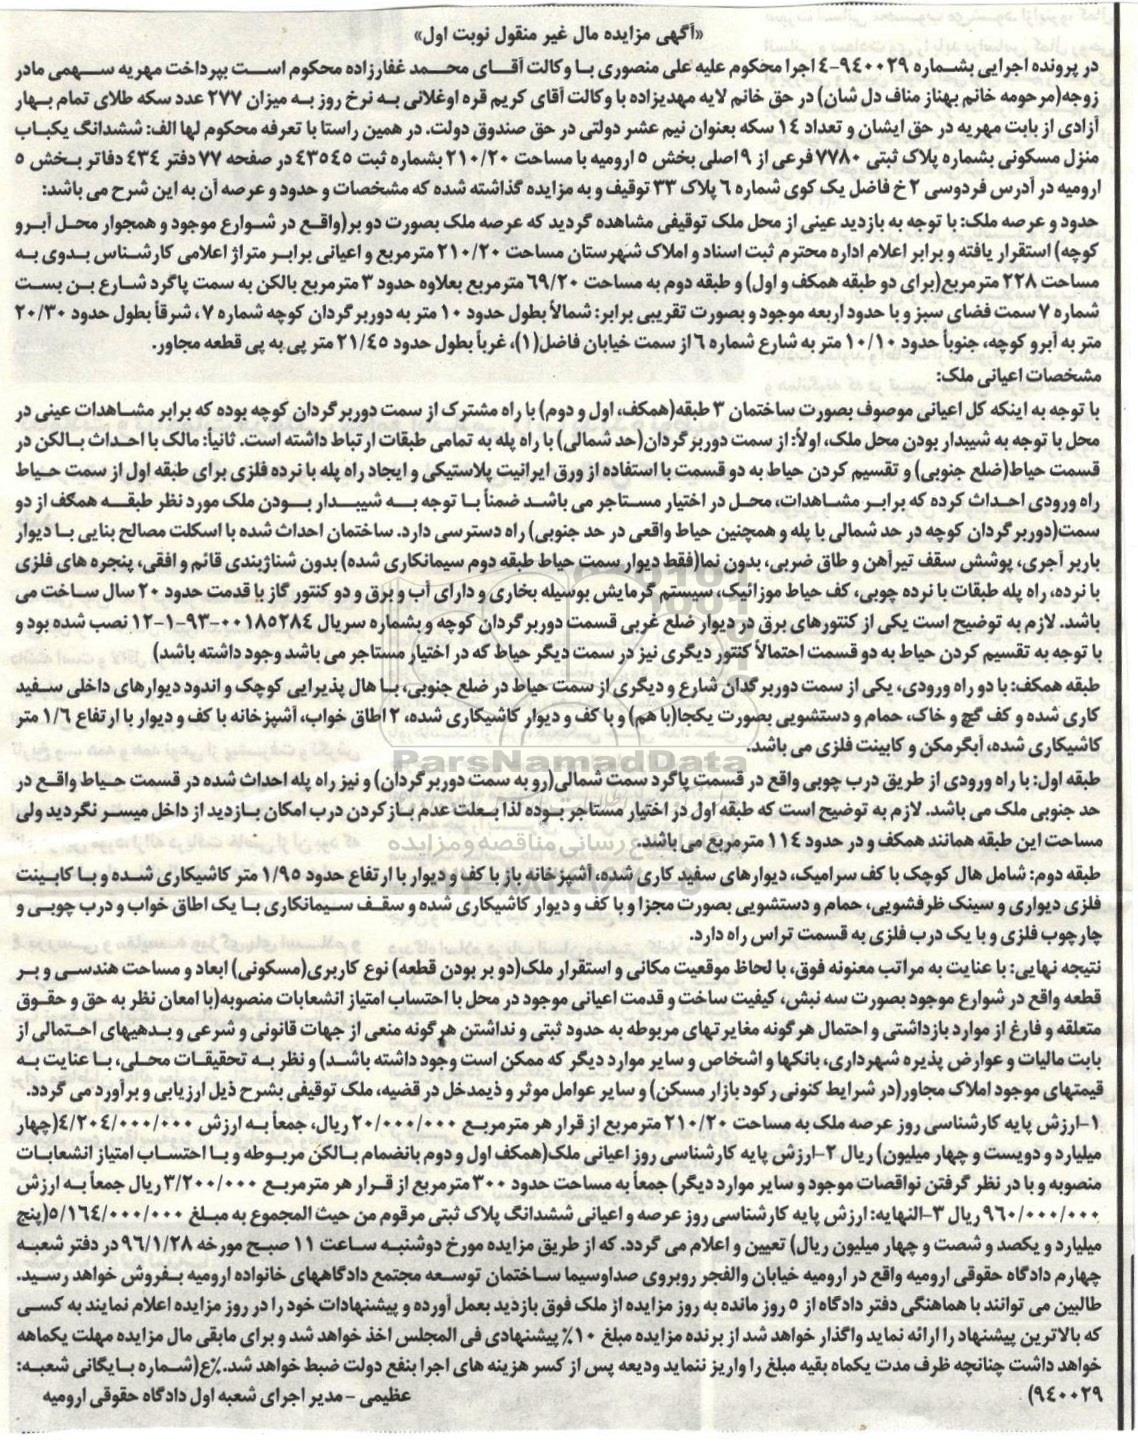 «آگهی مزایده مال غیر منقول نوبت اول»
در پرونده اجرایی بشماره ۹٤۰۰۲۹-٤ اجرا محکوم علیه علی منصوری با وکالت آقای محمد غفارزاده محکوم است بپرداخت مهریه سهمی مادر
زوجه(مرحومه خانم بهناز مناف دل شان) در حق خانم لایه مهدیزاده با وکالت آقای کریم قره اوغلانی به نرخ روز به میزان ۲۷۷ عدد سکه طلای تمام بهار
آزادی از بابت مهریه در حق ایشان و تعداد ۱٤ سکه بعنوان نیم عشر دولتی در حق صندوق دولت. در همین راستا با تعرفه محکوم لها الف: ششدانگ یکباب
منزل مسکونی بشماره پلاک ثبتی ۷۷۸۰ فرعی از ۹ اصلی بخش ۵ ارومیه با مساحت ۲۱۰/۲۰ بشماره ثبت ٤۳۵٤۵ در صفحه ۷۷ دفتر ٤۳٤ دفاتر بخش ۵
ارومیه در آدرس فردوسی ۲ خ فاضل یک کوی شماره ٦ پلاک ۳۳ توقیف و به مزایده گذاشته شده که مشخصات و حدود و عرصه آن به این شرح می باشد:
حدود و عرصه ملک: با توجه به بازدید عینی از محل ملک توقیفی مشاهده گردید که عرصه ملک بصورت دو بر(واقع در شوارع موجود و همجوار محل آبرو
کوچه) استقرار یافته و برابر اعلام اداره محترم ثبت اسناد و املاک شهرستان مساحت ۲۱۰/۲۰ مترمربع و اعیانی برابر متراژ اعلامی کارشناس بدوی به
مساحت ۲۲۸ مترمربع(برای دو طبقه همکف و اول) و طبقه دوم به مساحت ٦۹/۲۰ مترمربع بعلاوه حدود ۳ مترمربع بالکن به سمت پاگرد شارع بن بست
شماره ۷ سمت فضای سبز و با حدود اربعه موجود و بصورت تقریبی برابر: شمالاً بطول حدود ۱۰ متر به دوربرگردان کوچه شماره ۷، شرقاً بطول حدود ۲۰/۳۰
متر به آبرو کوچه، جنوباً حدود ۱۰/۱۰ متر به شارع شماره ٦ از سمت خیابان فاضل(۱)، غرباً بطول حدود ۲۱/٤۵ متر پی به پی قطعه مجاور.
مشخصات اعیانی ملک:
با توجه به اینکه کل اعیانی موصوف بصورت ساختمان ۳ طبقه(همکف، اول و دوم) با راه مشترک از سمت دوربرگردان کوچه بوده که برابر مشاهدات عینی در
محل با توجه به شیبدار بودن محل ملک، اولاً: از سمت دوربرگردان(حد شمالی) با راه پله به تمامی طبقات ارتباط داشته است. ثانیاً: مالک با احداث بالکن در
قسمت حیاط(ضلع جنوبی) و تقسیم کردن حیاط به دو قسمت با استفاده از ورق ایرانیت پلاستیکی و ایجاد راه پله با نرده فلزی برای طبقه اول از سمت حیاط
راه ورودی احداث کرده که برابر مشاهدات، محل در اختیار مستاجر می باشد ضمناً با توجه به شیبدار بودن ملک مورد نظر طبقه همکف از دو
سمت(دوربرگردان کوچه در حد شمالی با پله و همچنین حیاط واقعی در حد جنوبی) راه دسترسی دارد. ساختمان احداث شده با اسکلت مصالح بنایی با دیوار
باربر آجری، پوشش سقف تیرآهن و طاق ضربی، بدون نما(فقط دیوار سمت حیاط طبقه دوم سیمانکاری شده) بدون شناژبندی قائم و افقی، پنجره های فلزی
با نرده، راه پله طبقات با نرده چوبی، کف حیاط موزائیک، سیستم گرمایش بوسیله بخاری و دارای آب و برق و دو کنتور گاز با قدمت حدود ۲۰ سال ساخت می
باشد. لازم به توضیح است یکی از کنتورهای برق در دیوار ضلع غربی قسمت دوربرگردان کوچه و بشماره سریال ۰۰۱۸۵۲۸٤-۹۳-۱-۱۲ نصب شده بود و
با توجه به تقسیم کردن حیاط به دو قسمت احتمالاً کنتور دیگری نیز در سمت دیگر حیاط که در اختیار مستاجر می باشد وجود داشته باشد)
طبقه همکف: با دو راه ورودی، یکی از سمت دوربرگدان شارع و دیگری از سمت حیاط در ضلع جنوبی، با هال پذیرایی کوچک و اندود دیوارهای داخلی سفید
کاری شده و کف گچ و خاک، حمام و دستشویی بصورت یکجا(با هم) و با کف و دیوار کاشیکاری شده، ۲ اطاق خواب، آشپزخانه با کف و دیوار با ارتفاع ۱/٦ متر
کاشیکاری شده، آبگرمکن و کابینت فلزی می باشد.
طبقه اول: با راه ورودی از طریق درب چوبی واقع در قسمت پاگرد سمت شمالی(رو به سمت دوربرگردان) و نیز راه پله احداث شده در قسمت حیاط واقع در
حد جنوبی ملک می باشد. لازم به توضیح است که طبقه اول در اختیار مستاجر بوده لذا بعلت عدم بازکردن درب امکان بازدید از داخل میسر نگردید ولی
مساحت این طبقه همانند همکف و در حدود ۱۱٤ مترمربع می باشد.
طبقه دوم: شامل هال کوچک با کف سرامیک، دیوارهای سفید کاری شده، آشپزخانه باز با کف و دیوار با ارتفاع حدود ۱/۹۵ متر کاشیکاری شده و با کابینت
فلزی دیواری و سینک ظرفشویی، حمام و دستشویی بصورت مجزا و با کف و دیوار کاشیکاری شده و سقف سیمانکاری با یک اطاق خواب و درب چوبی و
چارچوب فلزی و با یک درب فلزی به قسمت تراس راه دارد.
نتیجه نهایی: با عنایت به مراتب معنونه فوق، با لحاظ موقعیت مکانی و استقرار ملک(دو بر بودن قطعه) نوع کاربری(مسکونی) ابعاد و مساحت هندسی و بر
قطعه واقع در شوارع موجود بصورت سه نبش، کیفیت ساخت و قدمت اعیانی موجود در محل با احتساب امتیاز انشعابات منصوبه(با امعان نظر به حق و حقوق
متعلقه و فارغ از موارد بازداشتی و احتمال هرگونه مغایرتهای مربوطه به حدود ثبتی و نداشتن هرگونه منعی از جهات قانونی و شرعی و بدهیهای احتمالی از
بابت مالیات و عوارض پذیره شهرداری، بانکها و اشخاص و سایر موارد دیگر که ممکن است وجود داشته باشد) و نظر به تحقیقات محلی، با عنایت به
قیمتهای موجود املاک مجاور(در شرایط کنونی رکود بازار مسکن) و سایر عوامل موثر و ذیمدخل در قضیه، ملک توقیفی بشرح ذیل ارزیابی و برآورد می گردد.
۱-ارزش پایه کارشناسی روز عرصه ملک به مساحت ۲۱۰/۲۰ مترمربع از قرار هر مترمربع ۲۰/۰۰۰/۰۰۰ ریال، جمعاً به ارزش ٤/۲۰٤/۰۰۰/۰۰۰(چهار
میلیارد و دویست و چهار میلیون) ریال ۲-ارزش پایه کارشناسی روز اعیانی ملک(همکف اول و دوم بانضمام بالکن مربوطه و با احتساب امتیاز انشعابات
منصوبه و با در نظر گرفتن نواقصات موجود و سایر موارد دیگر) جمعاً به مساحت حدود ۳۰۰ مترمربع از قرار هر مترمربع ۳/۲۰۰/۰۰۰ ریال جمعاً به ارزش
۹٦۰/۰۰۰/۰۰۰ ریال ۳-النهایه: ارزش پایه کارشناسی روز عرصه و اعیانی ششدانگ پلاک ثبتی مرقوم من حیث المجموع به مبلغ ۵/۱٦٤/۰۰۰/۰۰۰(پنج
میلیارد و یکصد و شصت و چهار میلیون ریال) تعیین و اعلام می گردد. که از طریق مزایده مورخ دوشنبه ساعت ۱۱ صبح مورخه ۹٦/۱/۲۸ در دفتر شعبه
چهارم دادگاه حقوقی ارومیه واقع در ارومیه خیابان والفجر روبروی صداوسیما ساختمان توسعه مجتمع دادگاههای خانواده ارومیه بفروش خواهد رسید.
طالبین می توانند با هماهنگی دفتر دادگاه از ۵ روز مانده به روز مزایده از ملک فوق بازدید بعمل آورده و پیشنهادات خود را در روز مزایده اعلام نمایند به کسی
که بالاترین پیشنهاد را ارائه نماید واگذار خواهد شد از برنده مزایده مبلغ ۱۰٪ پیشنهادی فی المجلس اخذ خواهد شد و برای مابقی مال مزایده مهلت یکماهه
خواهد داشت چنانچه ظرف مدت یکماه بقیه مبلغ را واریز ننماید ودیعه پس از کسر هزینه های اجرا بنفع دولت ضبط خواهد شد.٪ع(شماره بایگانی شعبه:
۹٤۰۰۲۹) عظیمی - مدیر اجرای شعبه اول دادگاه حقوقی ارومیه
ParsNamadData